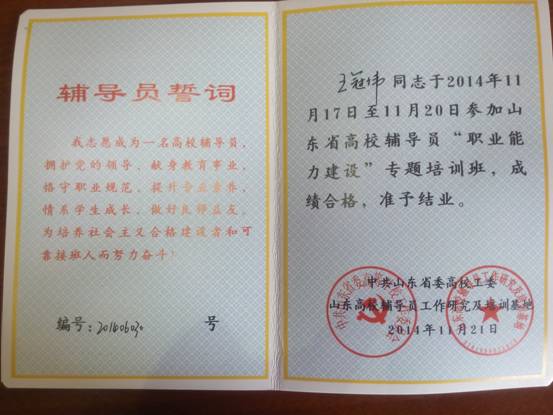 辅导员誓词
我志愿成为一名高校辅导员,
拥护党的领导、献身教育事业,
恪守职业规范、提升专业素养,
情系学生成长、做好良师益友,
为培养社会主义合格建设者和可
靠接班人而努力奋斗!
编号:201406030 号
王冠玮同志于2014年11
月17日至11月20日参加山
东省高校辅导员“职业能
力建设”专题培训班,成
绩合格,准予结业。
中共山东省委高校工委
山东高校辅导员工作研究及培训基地
2014年11月21日